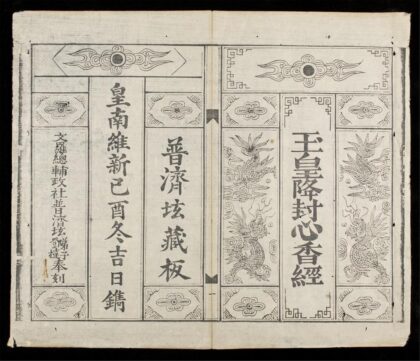 玉皇降封心香經
普濟坛藏板
皇南維新己酉冬吉日鐫
文羅總輔政社普濟坛奉刻